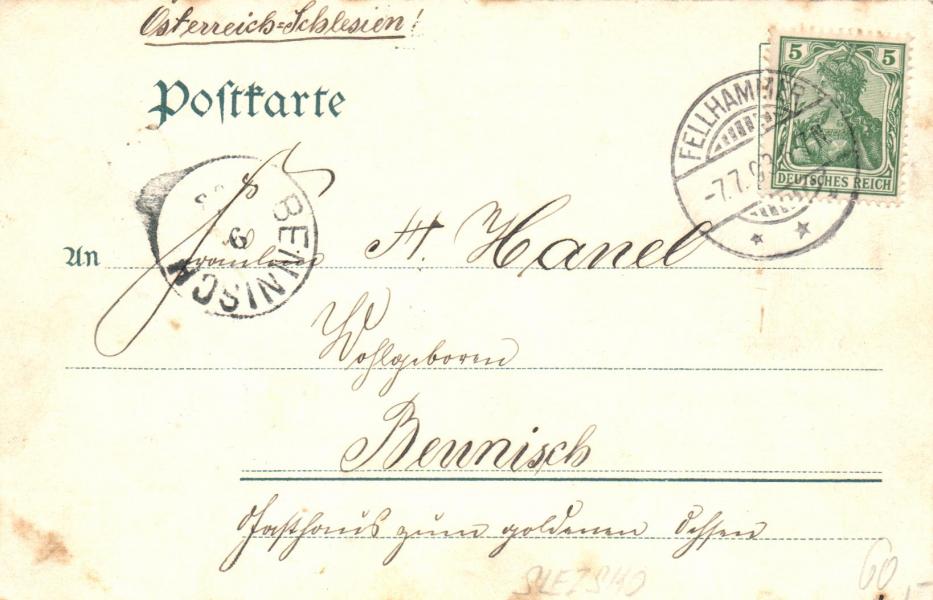 Österreich=Schlesien!
Postkarte
5 5
DEUTSCHES REICH
FELLHAMMER
-7.7.03
BENNISCH
An Fräulein A. Hanel
Wohlgeboren
Bennisch
Gasthaus zum goldenen Ochsen
SLEZSKO
60,-